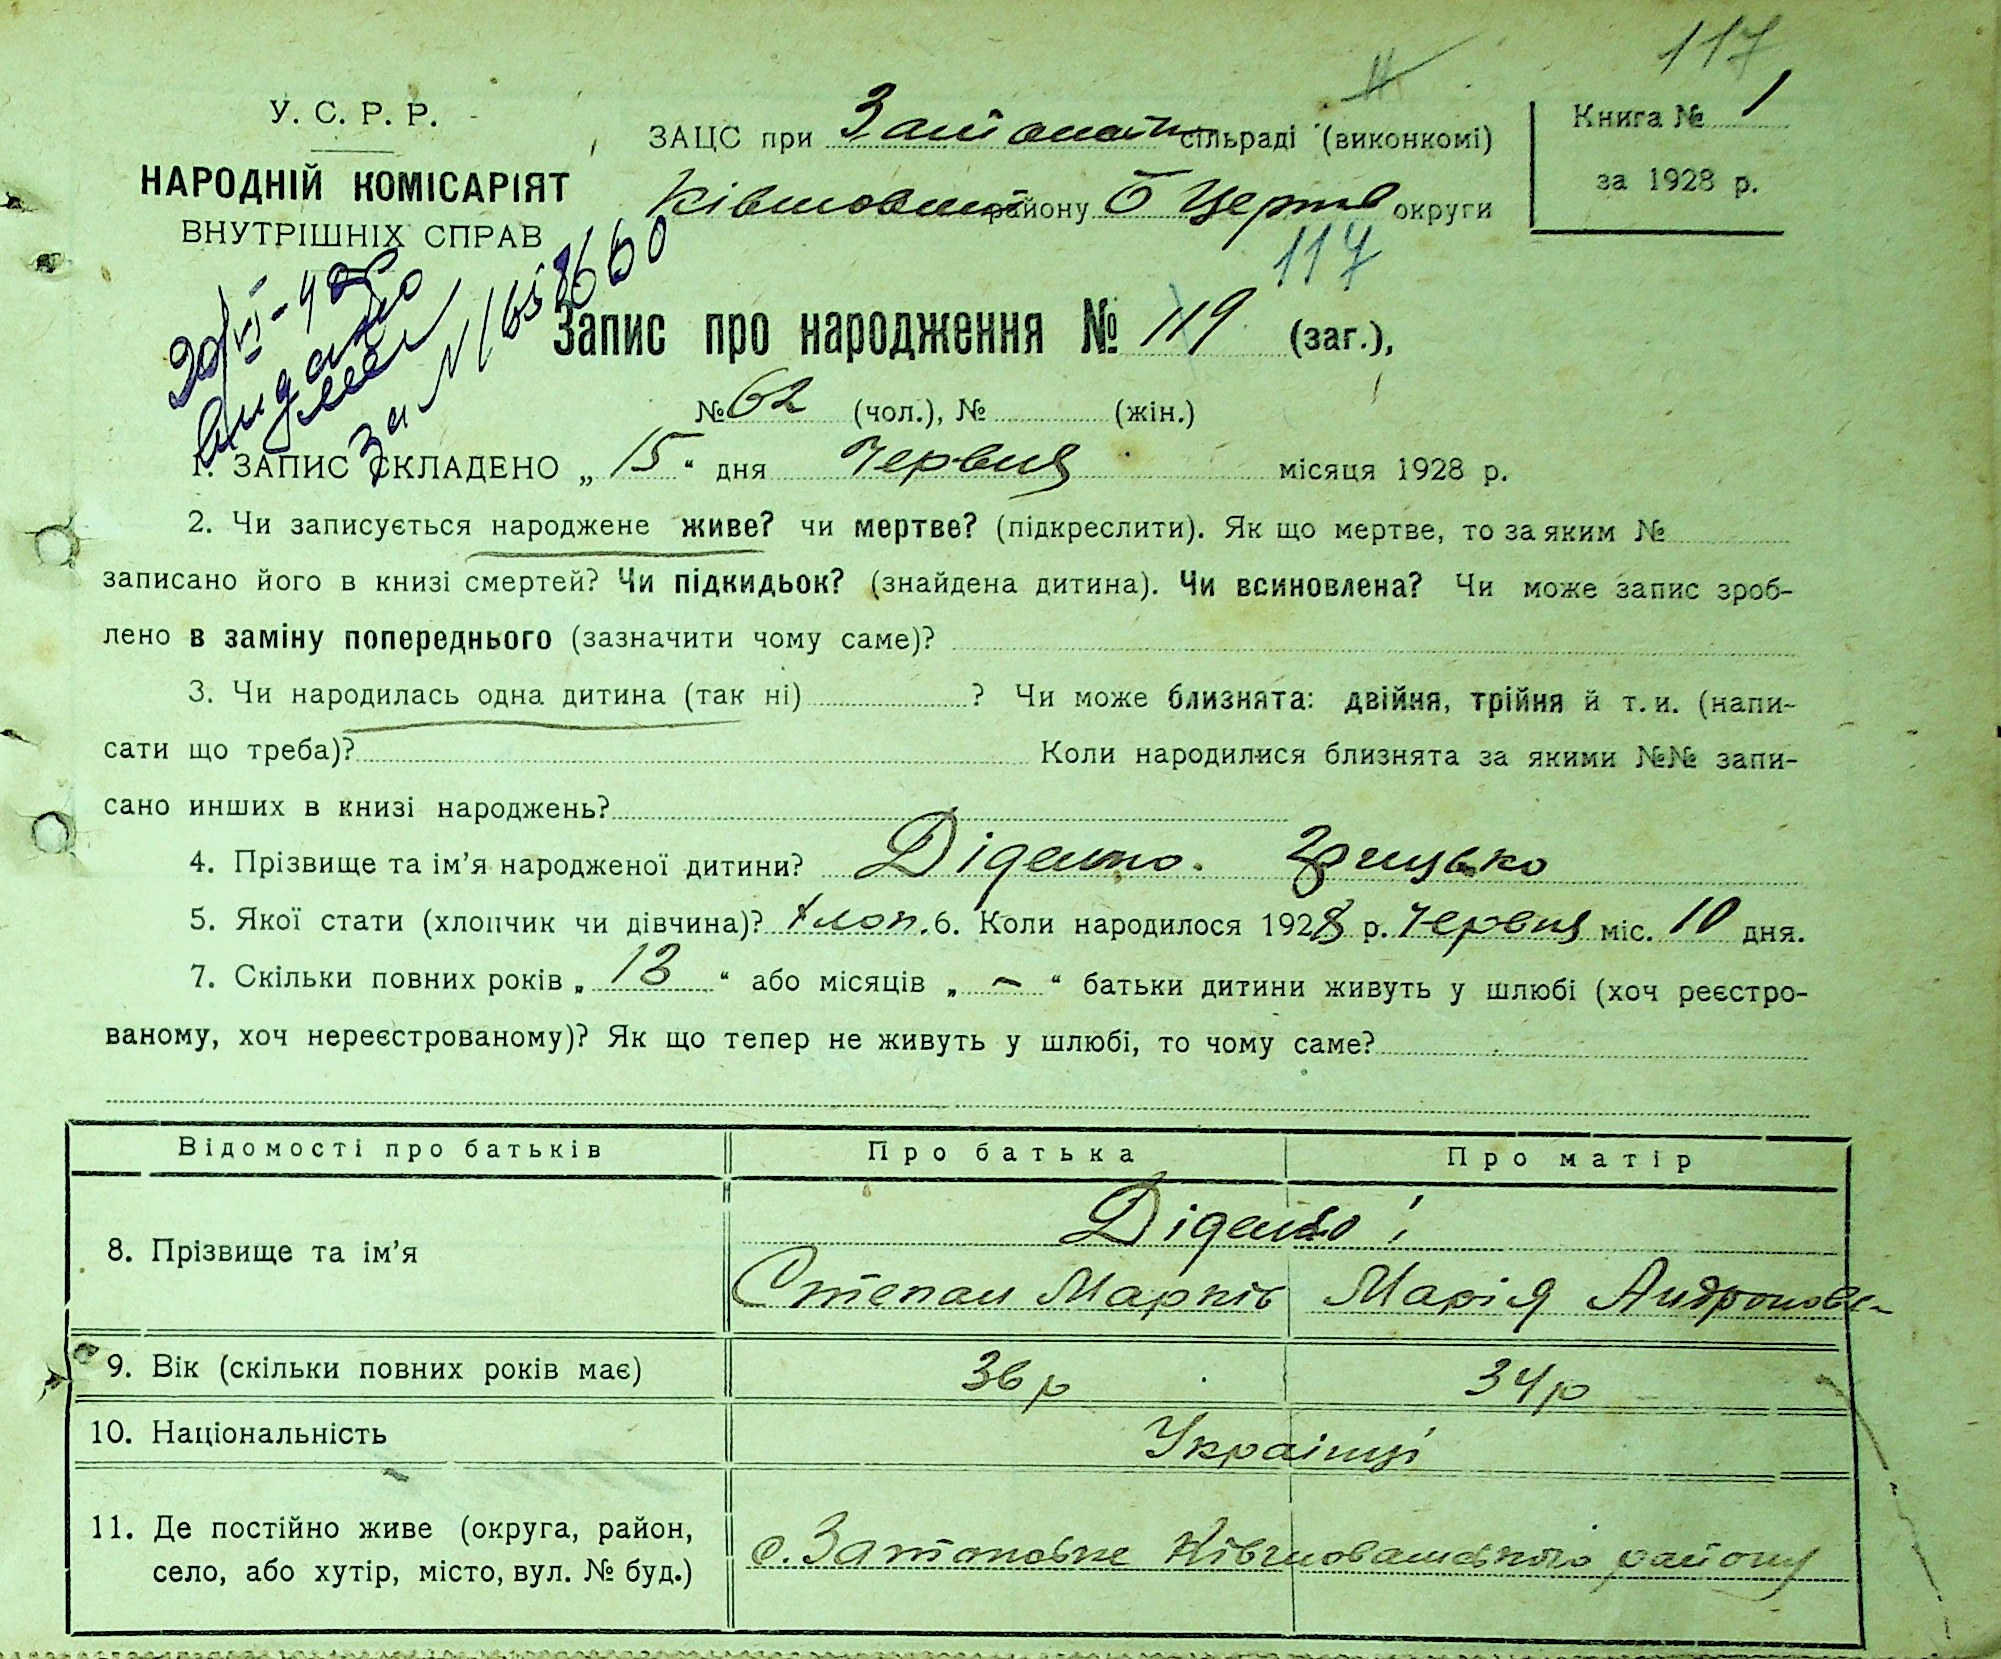 117
У. С. Р. Р.
НАРОДНІЙ КОМІСАРІЯТ
ВНУТРІШНІХ СПРАВ
ЗАЦС при сільраді (виконкомі)
району Б Церкв округи
Книга № 1
за 1928 р.
117
Запис про народження № 119 (заг.),
№ 62 (чол.), № (жін.)
1. ЗАПИС СКЛАДЕНО „ 15 “ дня Червня місяця 1928 р.
2. Чи записується народжене живе? чи мертве? (підкреслити). Як що мертве, то за яким №
записано його в книзі смертей? Чи підкидьок? (знайдена дитина). Чи всиновлена? Чи може запис зроб-
лено в заміну попереднього (зазначити чому саме)?
3. Чи народилась одна дитина (так ні) ? Чи може близнята: двійня, трійня й т. и. (напи-
сати що треба)? Коли народилися близнята за якими №№ запи-
сано инших в книзі народжень?
4. Прізвище та ім’я народженої дитини? Діденко. Грицько
5. Якої стати (хлопчик чи дівчина)? хлоп. 6. Коли народилося 1928 р. Червня міс. 10 дня.
7. Скільки повних років „ 13 “ або місяців „ – “ батьки дитини живуть у шлюбі (хоч реєстро-
ваному, хоч нереєстрованому)? Як що тепер не живуть у шлюбі, то чому саме?
Відомості про батьків Про батька Про матір
8. Прізвище та ім’я Діденко і
Степан Марків Марія Андронов
9. Вік (скільки повних років має) 36 р 34 р
10. Національність Українці
11. Де постійно живе (округа, район,
село, або хутір, місто, вул. № буд.) с. району